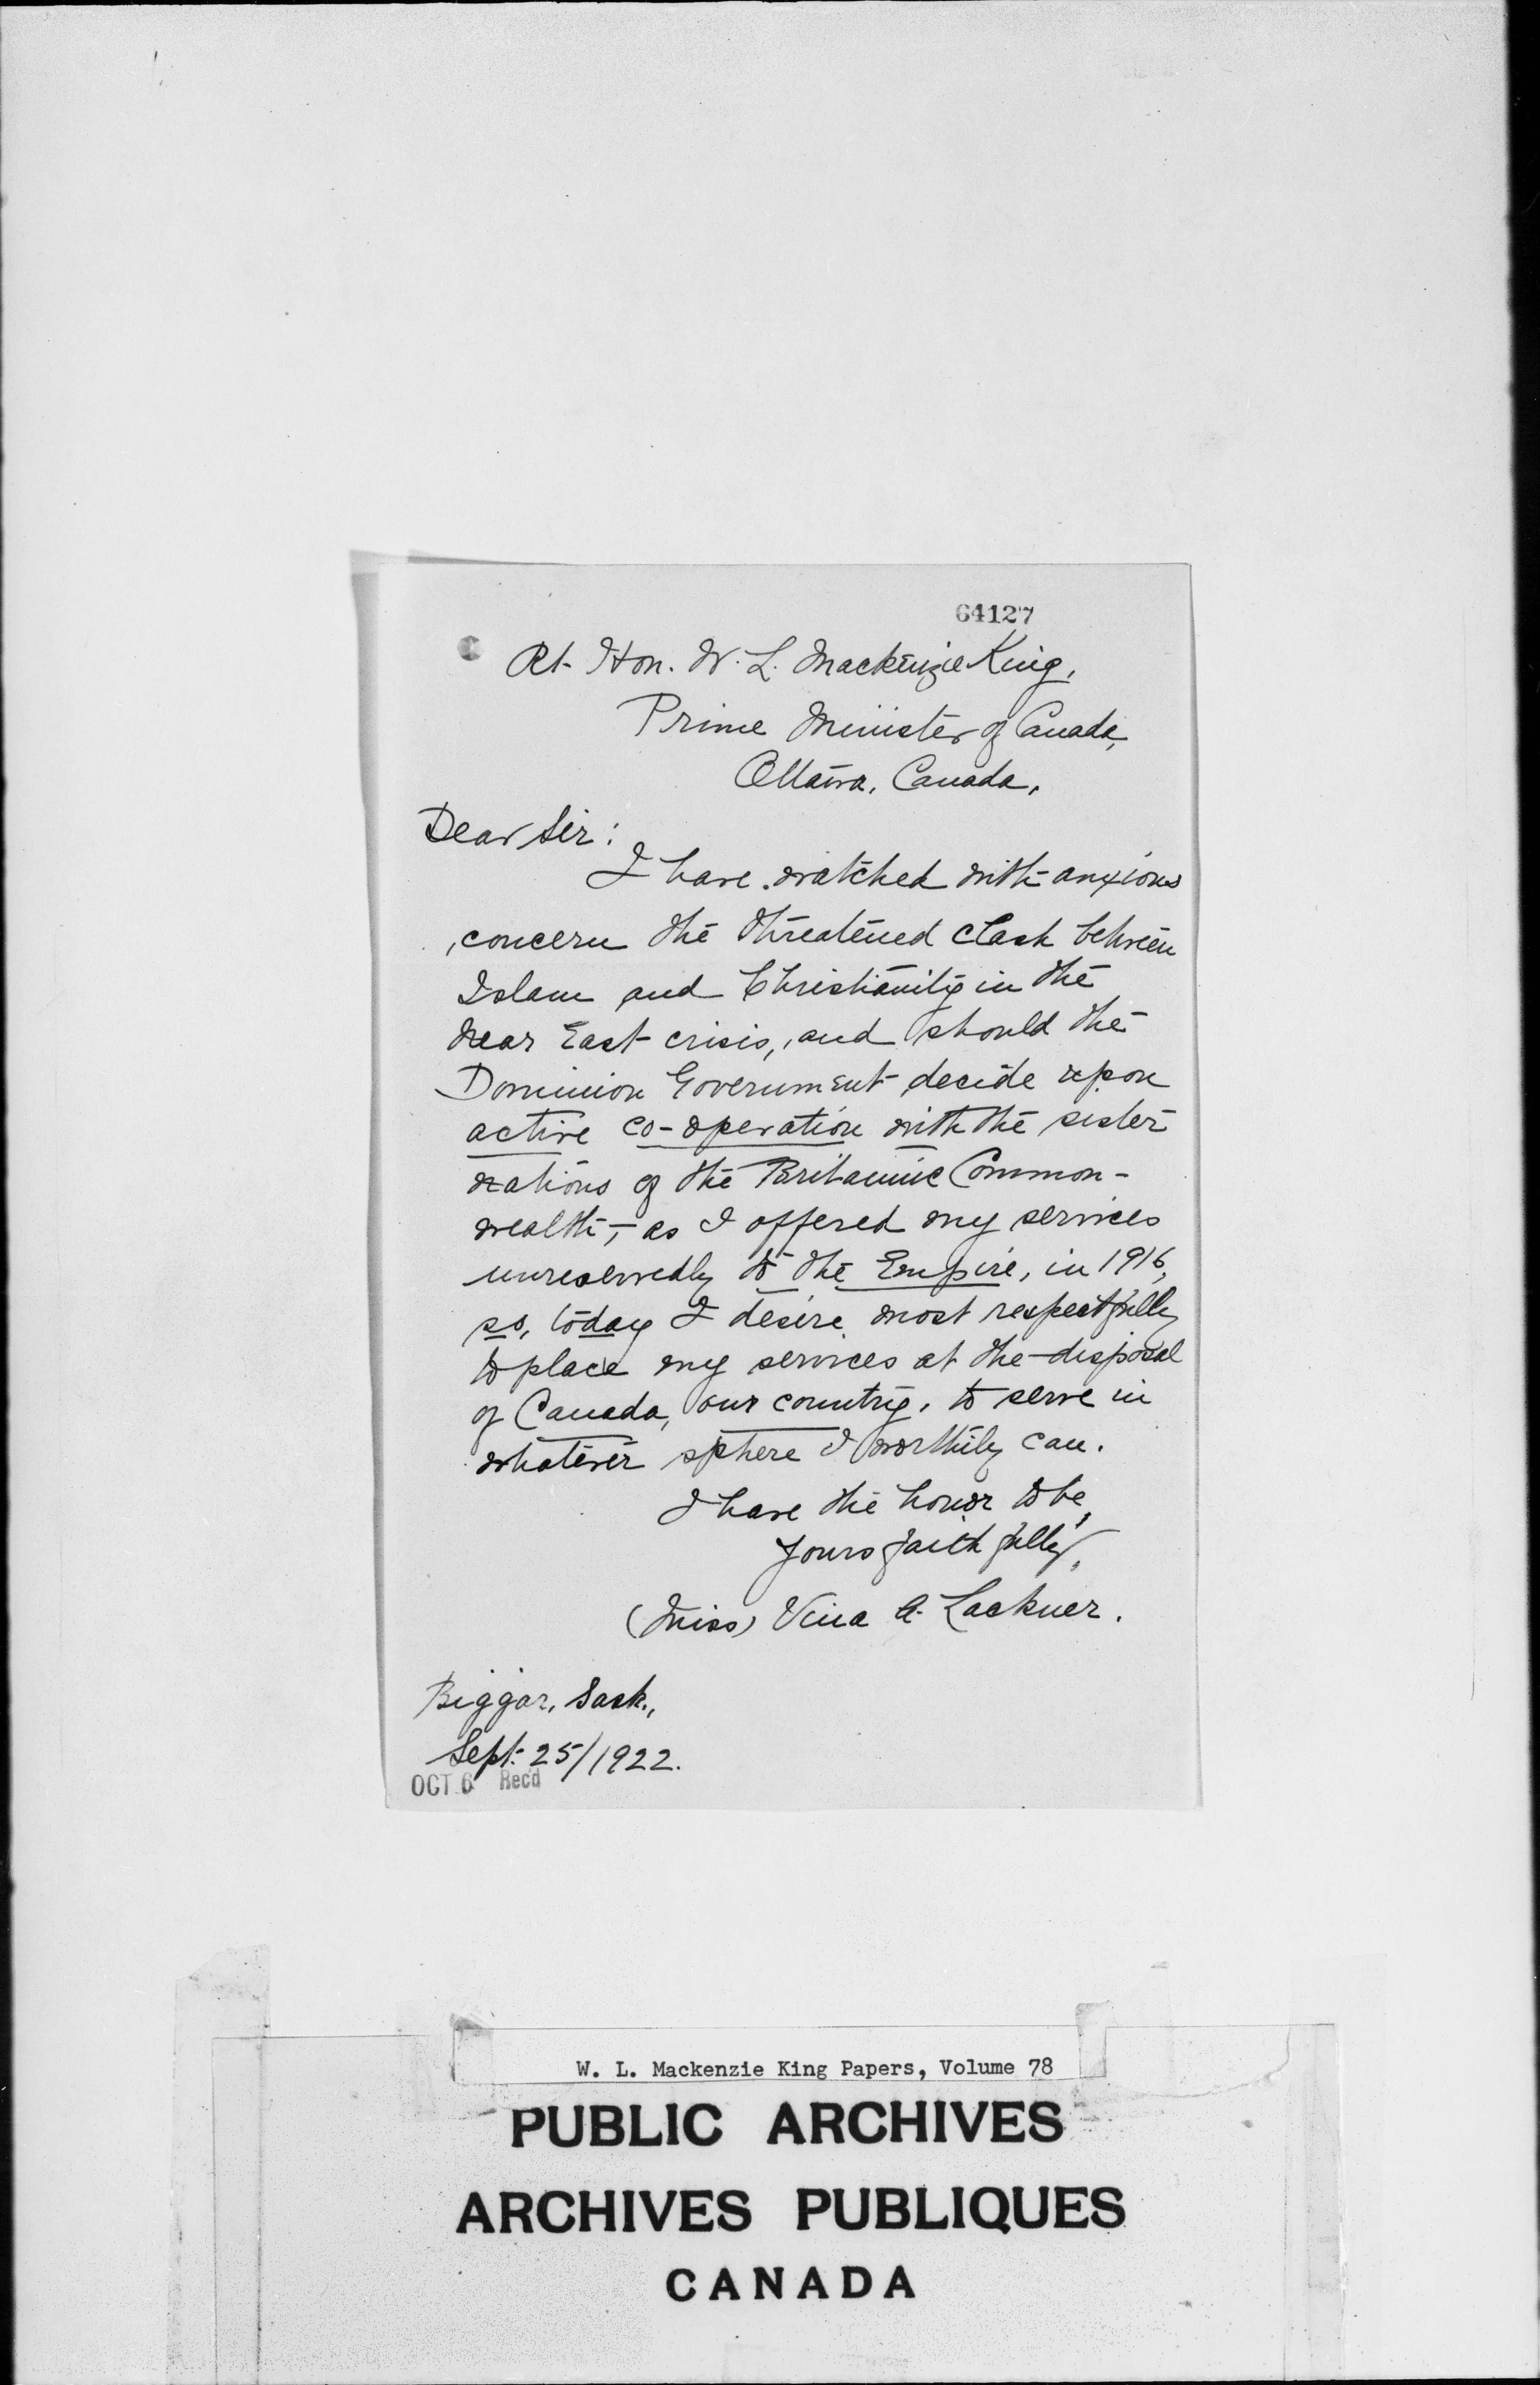 64127
Rt. Hon. W. L. Mackenzie King,
Prime Minister of Canada,
Ottawa, Canada.
Dear Sir:
I have watched with anxious
concern the threatened clash between
Islam and Christianity in the
Near East crisis, and should the
Dominion Government decide upon
active co-operation with the sister
nations of the Britannic Common-
wealth, - as I offered my services
unreservedly to the Empire, in 1916,
so, today I desire most respectfully
to place my services at the disposal
of Canada, our country, to serve in
whatever sphere I worthily can.
I have the honor to be,
Yours faithfully,
(Miss) Vina A. Lackner.
Biggar, Sask.,
Sept. 25/1922.
OCT 6 Rec'd
W. L. Mackenzie King Papers, Volume 78
PUBLIC ARCHIVES
ARCHIVES PUBLIQUES
CANADA